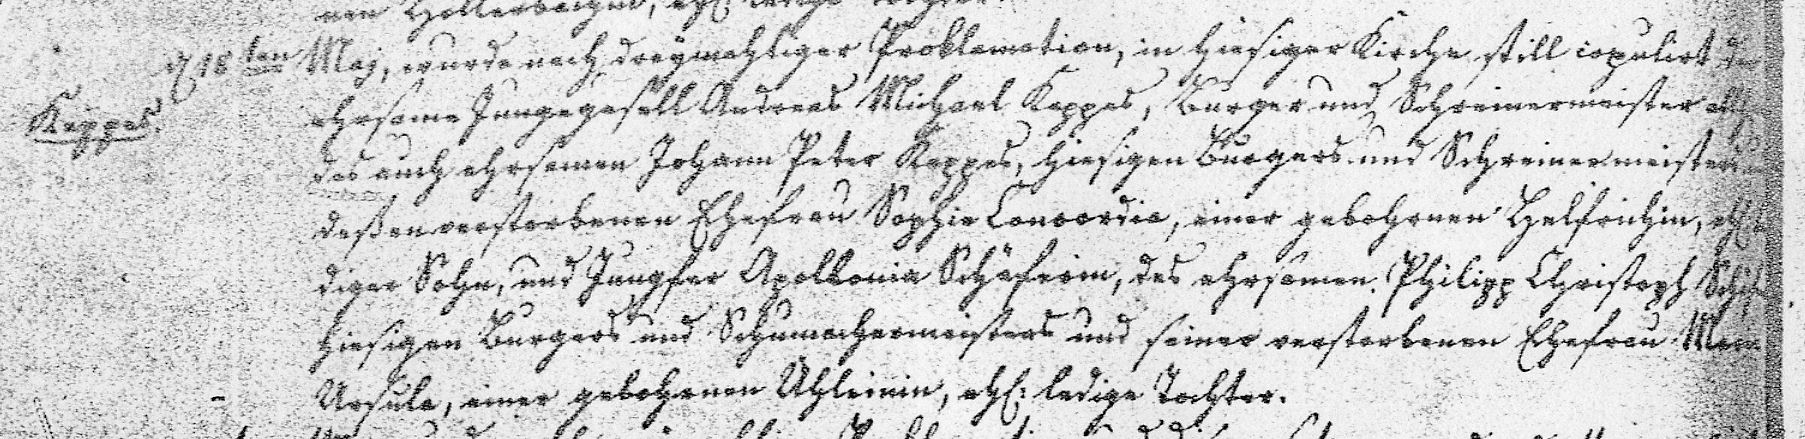 nen Hollerbachin, ehel. ledige Tochter.
d 18ten Maj, wurde nach dreymahliger Proklamation, in hiesiger Kirche still copulirt der
Keppes. ehrsame Jungegesell Andreas Michael Keppes, Burger und Schreinermeister all
des auch ehrsamen Johann Peter Keppes, hiesigen Burgers und Schreinermeisters
deßen verstorbenen Ehefrau Sophia Concordia, einer gebohrnen Helfrichin, ehel.
diger Sohn, und Jungfer Apollonia Schäferin, des ehrsamen Philipp Christoph Schäf
hiesigen Burgers und Schumachermeisters und seiner verstorbenen Ehefrau
Ursula, einer gebohrnen Uhleinin, ehl: ledige Tochter.